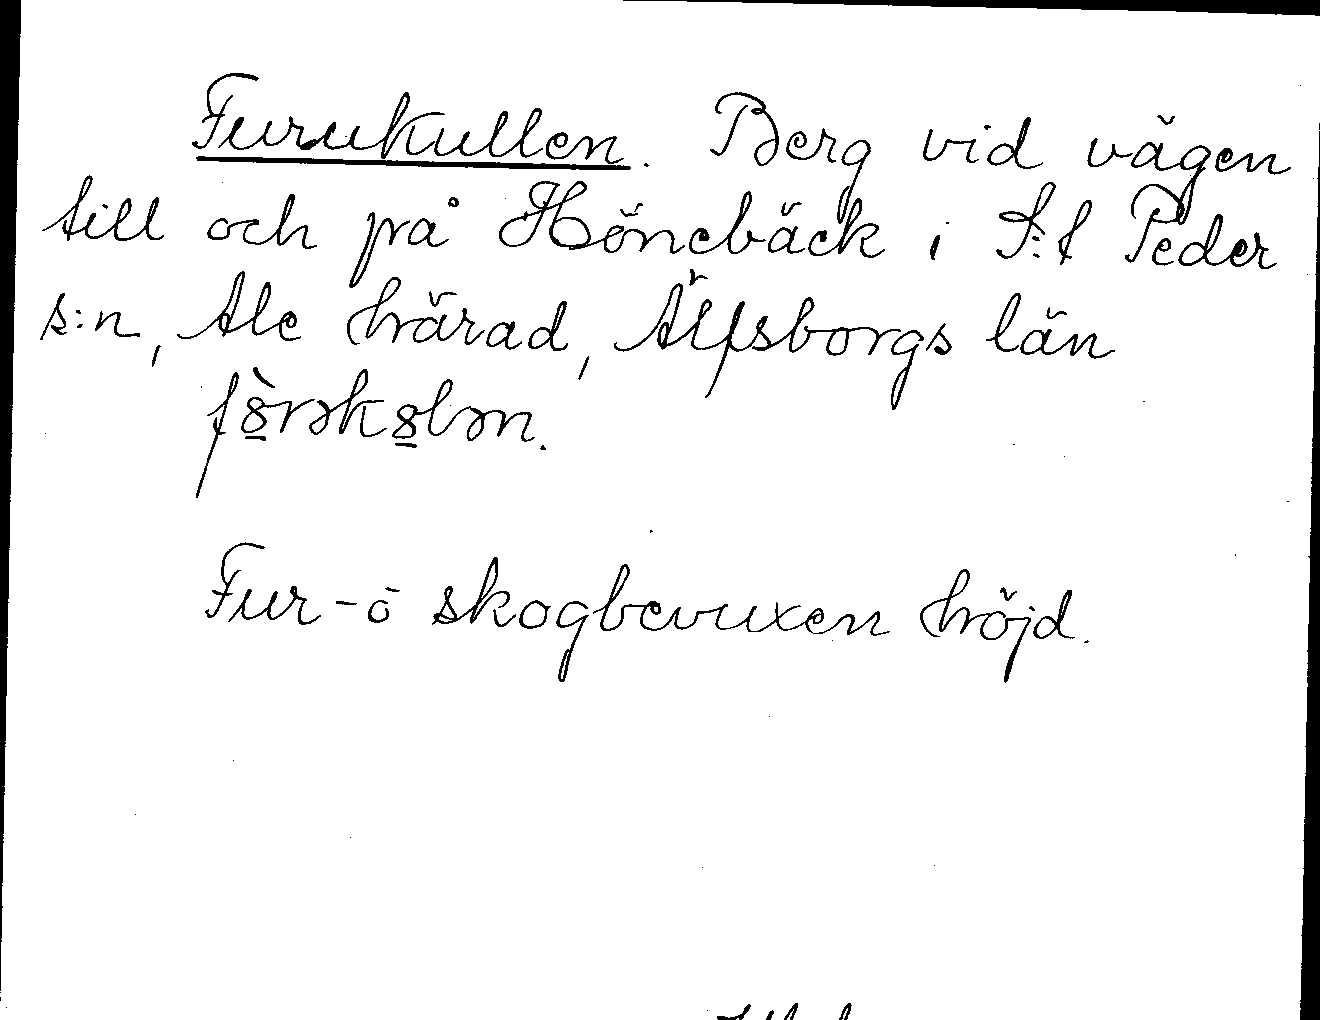 Furukullen. Berg vid vägen
till och på Hönebäck i S:t Peder
s:n, Ale härad, Älfsborgs län
fö̀rəkələn.
Fur-ō skogbevuxen höjd.